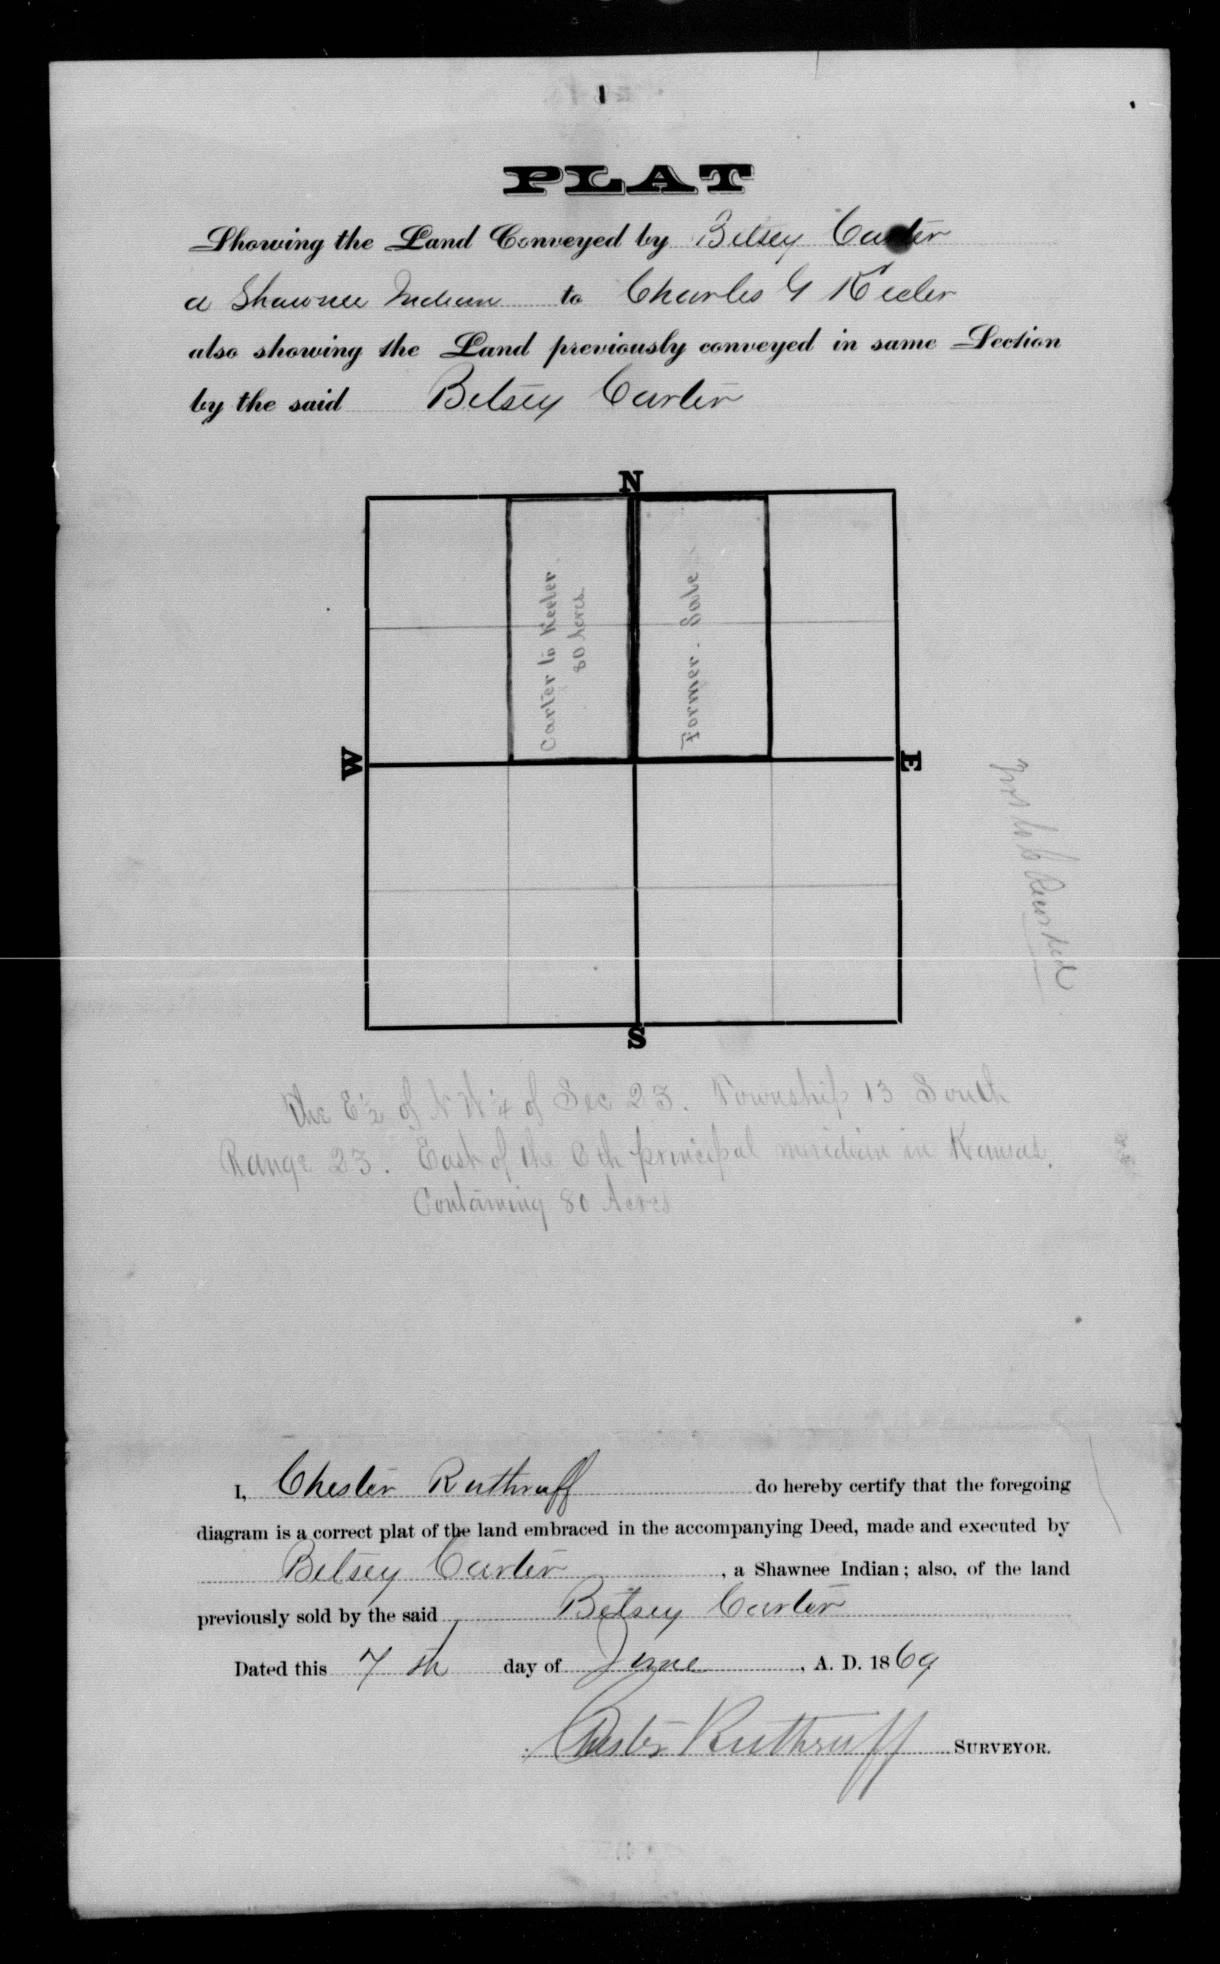 1
PLAT
Showing the Land Conveyed by Betsey Carter
a Shawnee Indian to Charles G Keeler
also showing the Land previously conveyed in same Section
by the said Betsey Carter
N
Carter to Keeler
80 Acres
Former Sale
W
E
S
Recorded
The E½ of N W¼ of Sec 23. Township 13 South
Range 23. East of the 6th principal meridian in Kansas.
Containing 80 Acres
I, Chester Ruthruff do hereby certify that the foregoing
diagram is a correct plat of the land embraced in the accompanying Deed, made and executed by
Betsey Carter, a Shawnee Indian; also, of the land
previously sold by the said Betsey Carter
Dated this 7th day of June, A. D. 1869
Chester Ruthruff SURVEYOR.